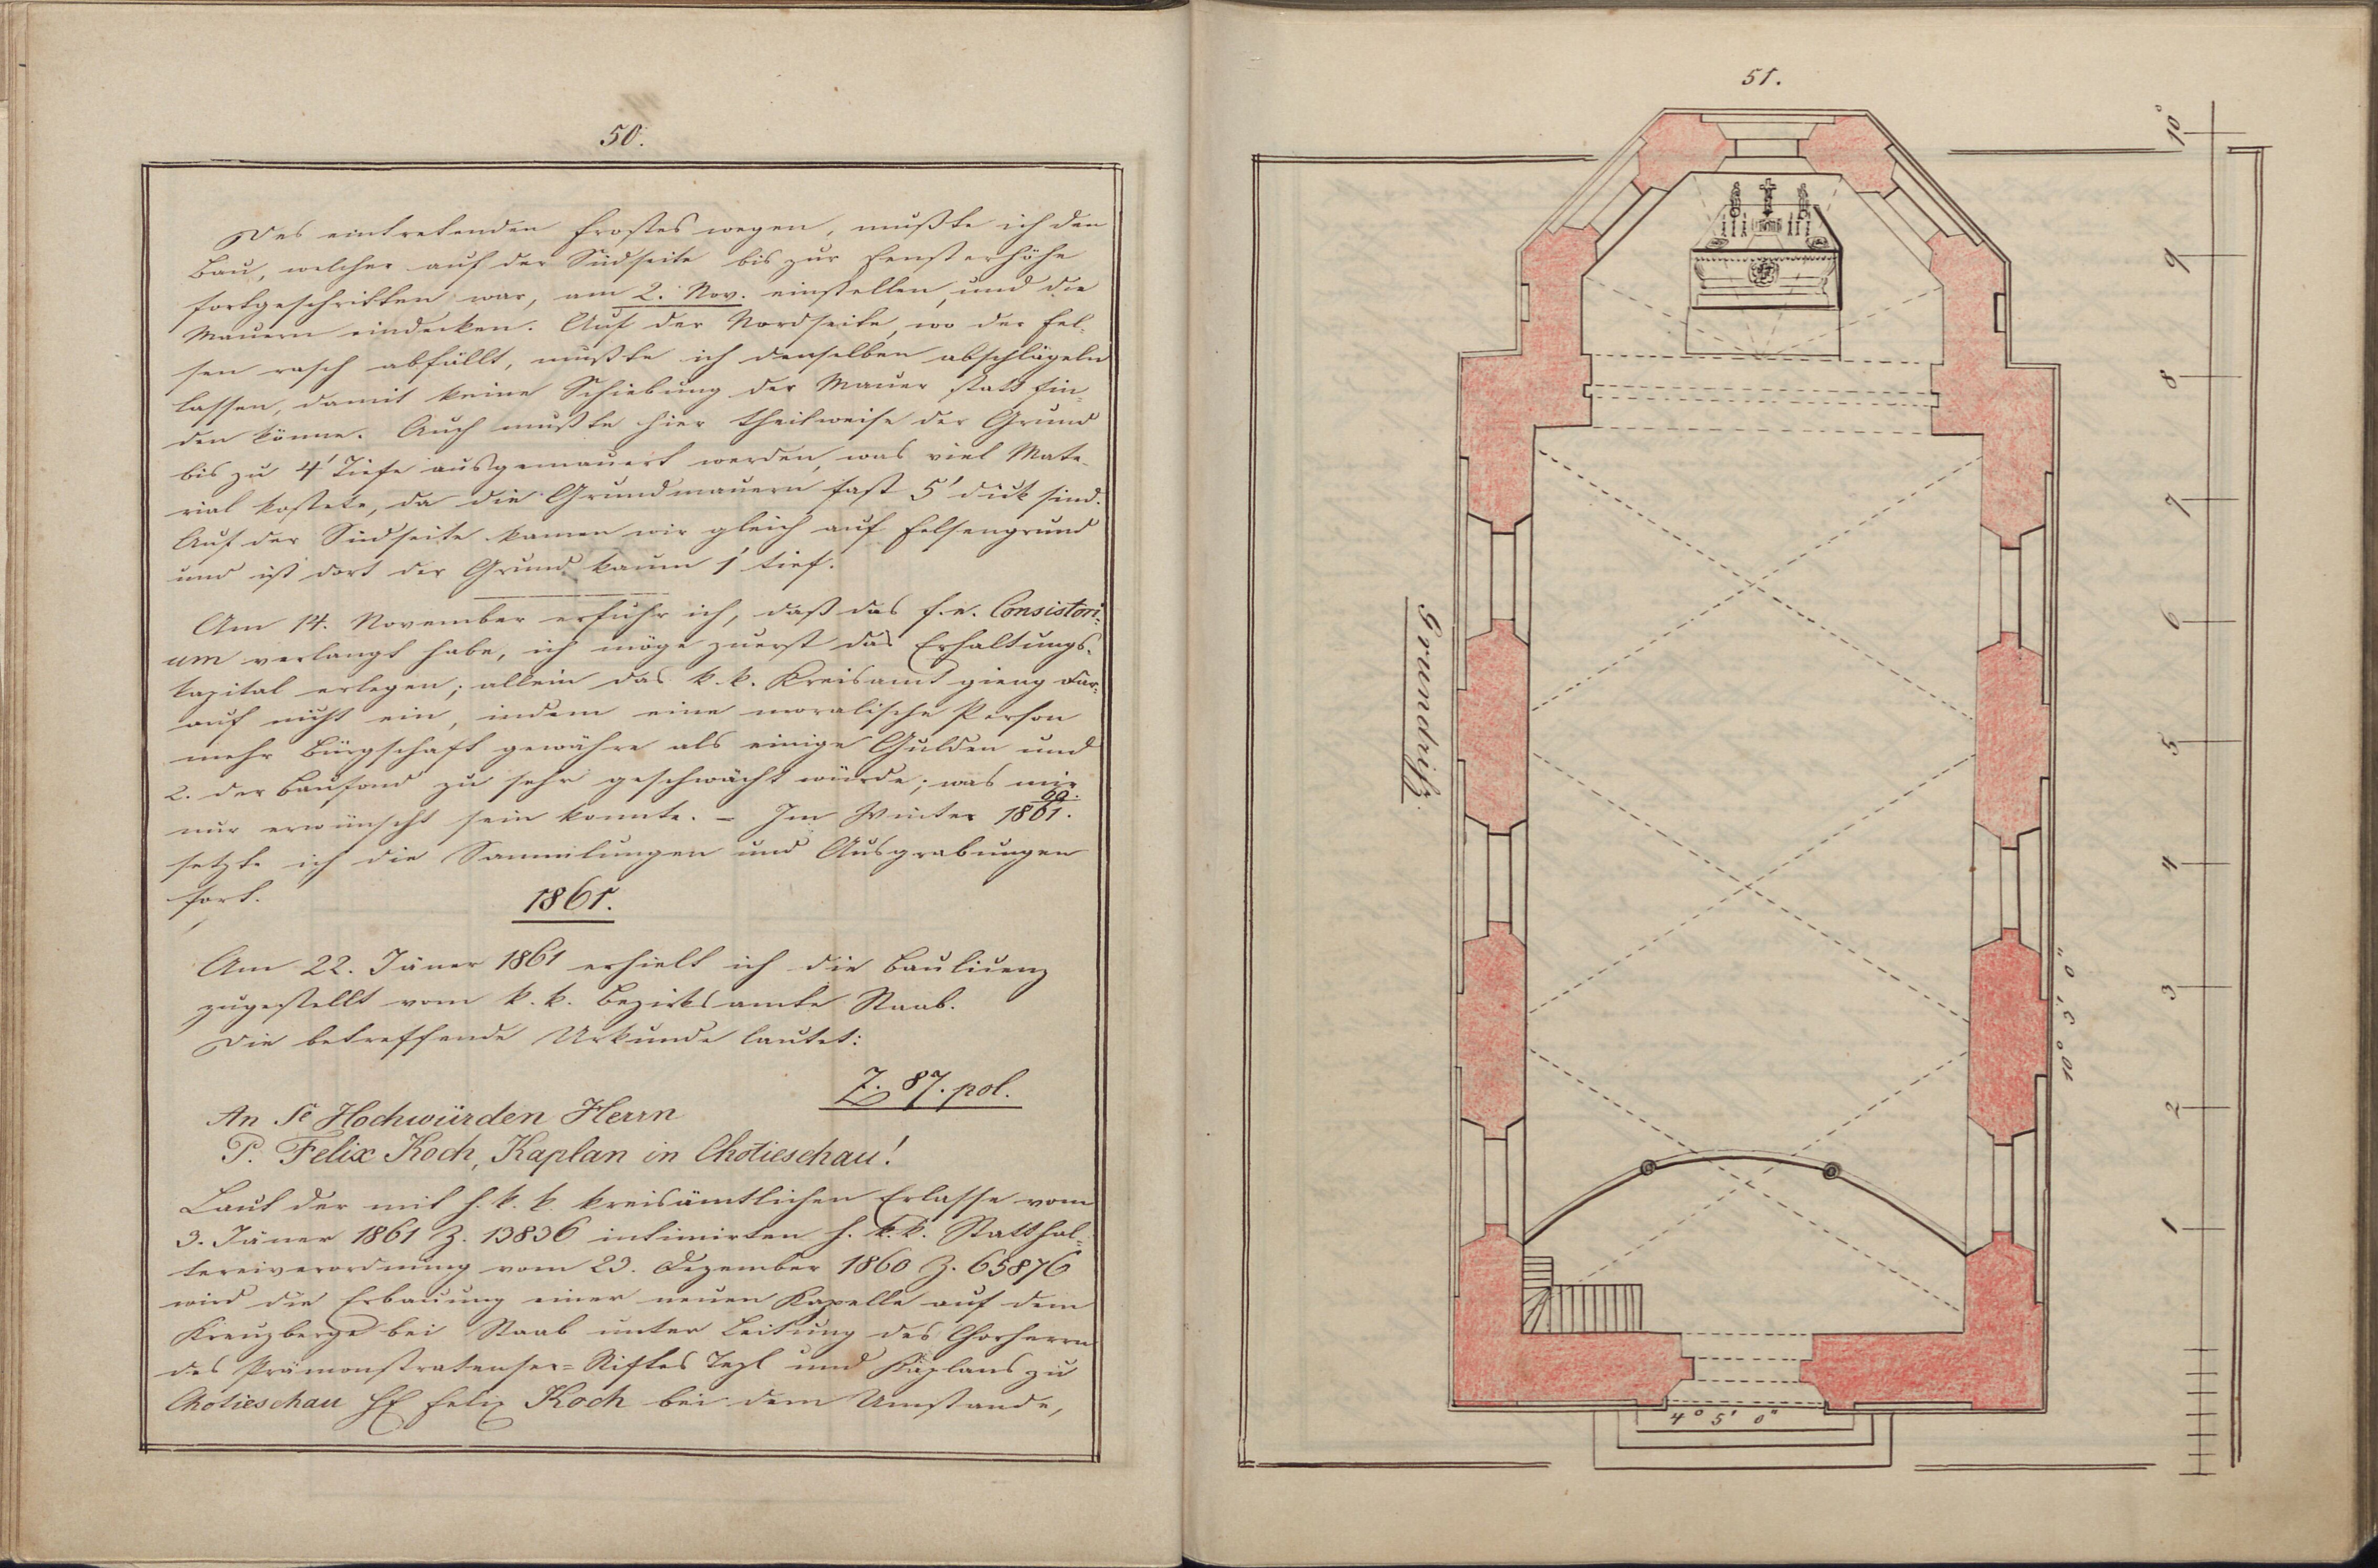 50.
Des eintretenden Frostes wegen, mußte ich den
Bau, welcher auf der Südseite bis zur Fensterhöhe
fortgeschritten war, am 2. Nov. einstellen, und die
Mauern eindecken. Auf der Nordseite, wo der Fel-
sen rasch abfällt, mußte ich denselben abschlägeln
lassen, damit keine Schiebung der Mauer statt fin-
den könne. Auch mußte hier theilweise der Grund
bis zu 4' Tiefe ausgemauert werden, was viel Mate-
rial kostete, da die Grundmauern fast 5' dick sind.
Auf der Südseite kamen wir gleich auf Felsengrund
und ist dort der Grund kaum 1' tief.
Am 14. November erfuhr ich, daß das f. e. Consistori-
um verlangt habe, ich möge zuerst das Erhaltungs-
kapital erlegen; allein das k. k. Kreisamt gieng dar-
auf nicht ein, indem eine moralische Person
mehr Bürgschaft gewähre als einige Gulden und
2. der Baufond zu sehr geschwächt würde; was mir
nur erwünscht sein konnte. – Im Winter 1860/1861.
setzte ich die Sammlungen und Ausgrabungen
fort.
1861.
Am 22. Jäner 1861 erhielt ich die Baulicenz
zugestellt vom k. k. Bezirksamte Staab.
Die betreffende Urkunde lautet:
Z. 87. pol.
An Se Hochwürden Herrn
P. Felix Koch, Kaplan in Chotieschau!
Laut der mit h. k. k. kreisämtlichen Erlasse vom
3. Jäner 1861 Z. 13836 intimirten h. k. k. Statthal-
tereiverordnung vom 23. Dezember 1860 Z. 65876
wird die Erbauung einer neuen Kapelle auf dem
Kreuzberge bei Staab unter Leitung des Chorherrn
des Prämonstratenser-Stiftes Tepl und Kaplans zu
Chotieschau H. Felix Koch bei dem Umstande,
51.
Grundriß.
10°
9
8
7
6
5
4
3
2
1
10° 3' 0"
4° 5' 0"